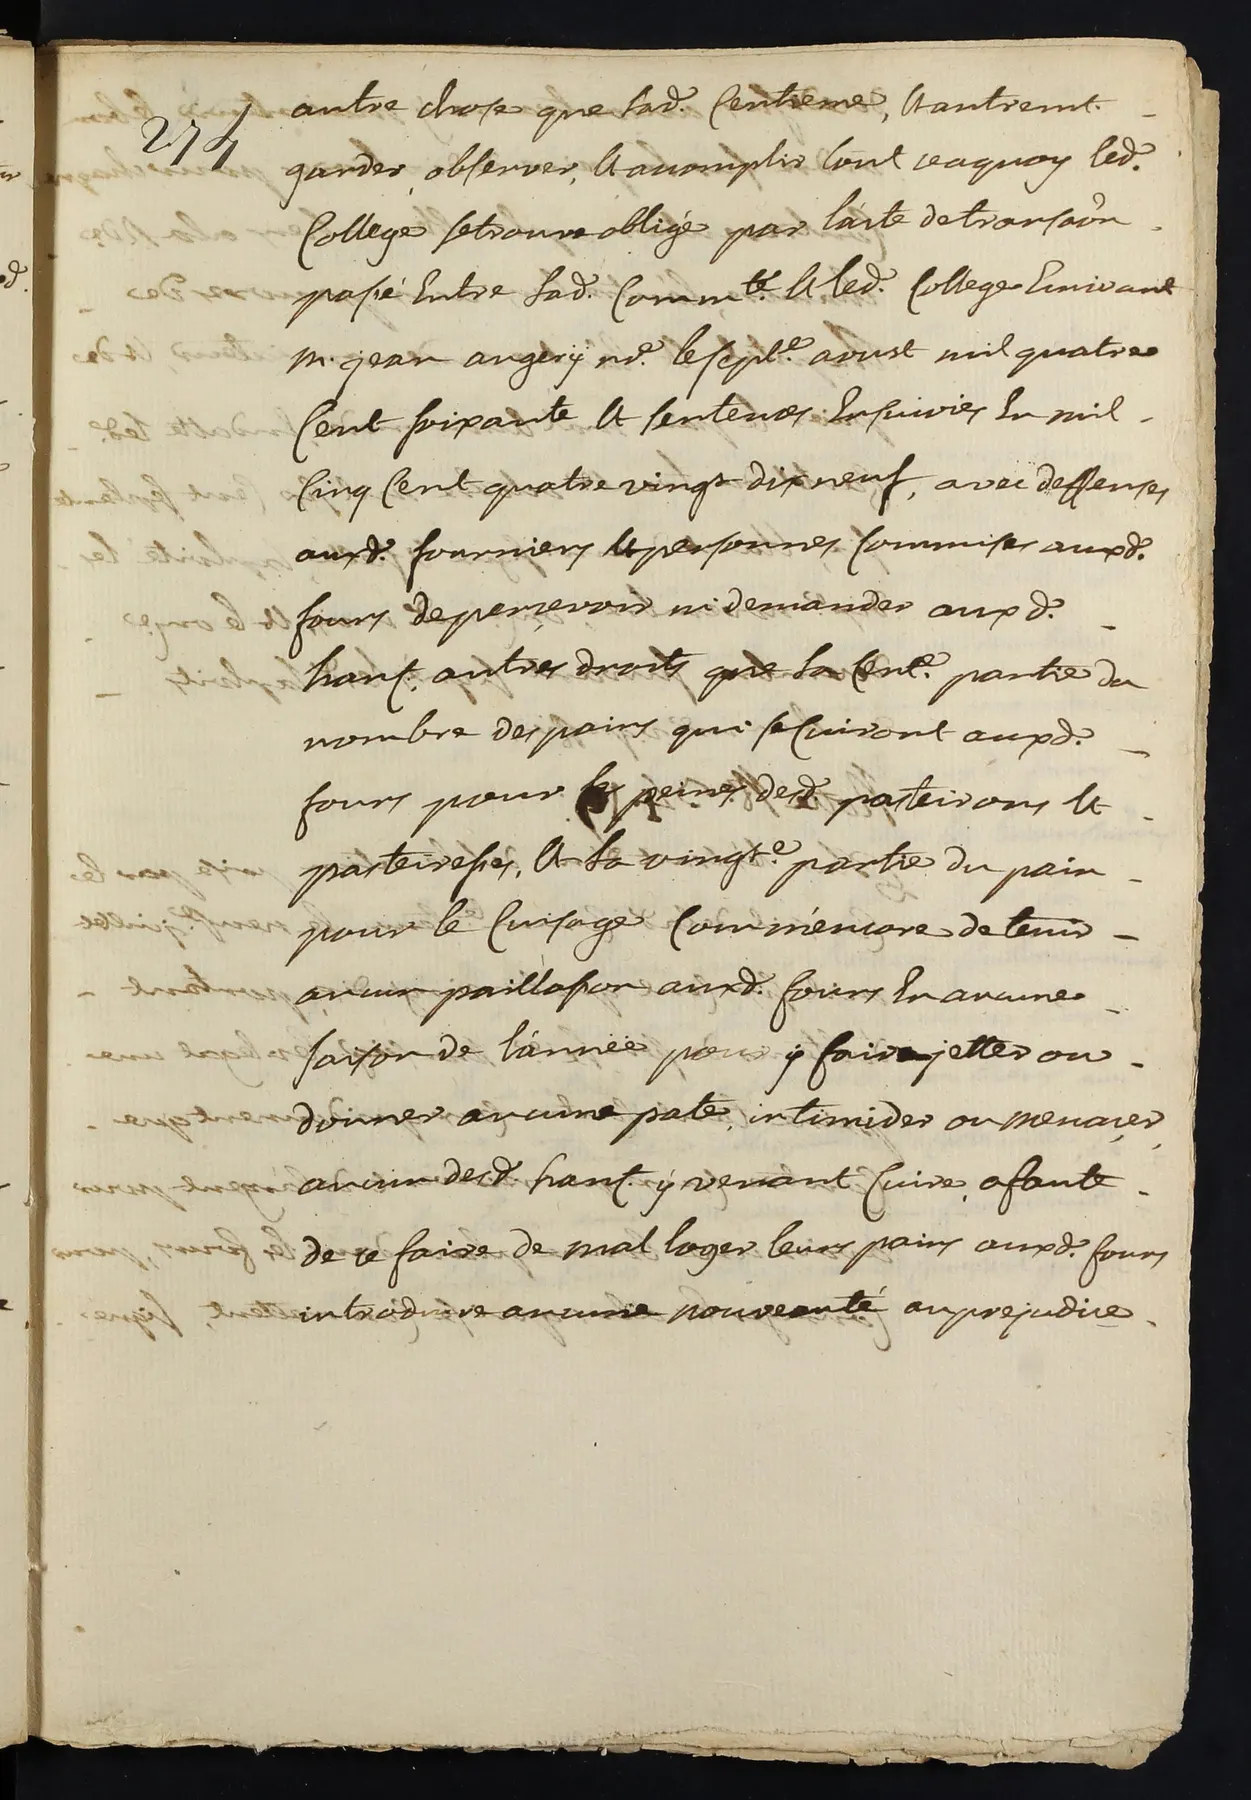 274
autre chose que lad. Centieme, et autremt.
garder, observer, et acomplir tout ceaquoy led.
College se trouve obligé par l'acte de transaôn
passé Entre lad. Commte. et led. College Ecrivant
m. jean augery nre. le sept.e aoust mil quatre
Cent soixante et sentences Ensuivies En mil
Cinq Cent quatre vingt dix neuf, avec deffenses
auxd. fourniers et personnes Commises auxd.
fours de persevoir ni demander aux d.
hant. autres droits que la Cent.e partie du
nombre des pains qui se Cuiront auxd.
fours pour les peines desd. pasteirons et
pasteiresses, et la vingt.e partie du pain
pour le Cuisage Comm'encore de tenir
aucun paillasson auxd. fours En aucune
saison de l'année pour y faire jetter ou
donner aucune pate, intimider ou menacer
aucun desd. hant. y venant Cuire, a faute
de ce faire de mal loger leurs pains auxd. fours
introduire aucune nouveauté au prejudice